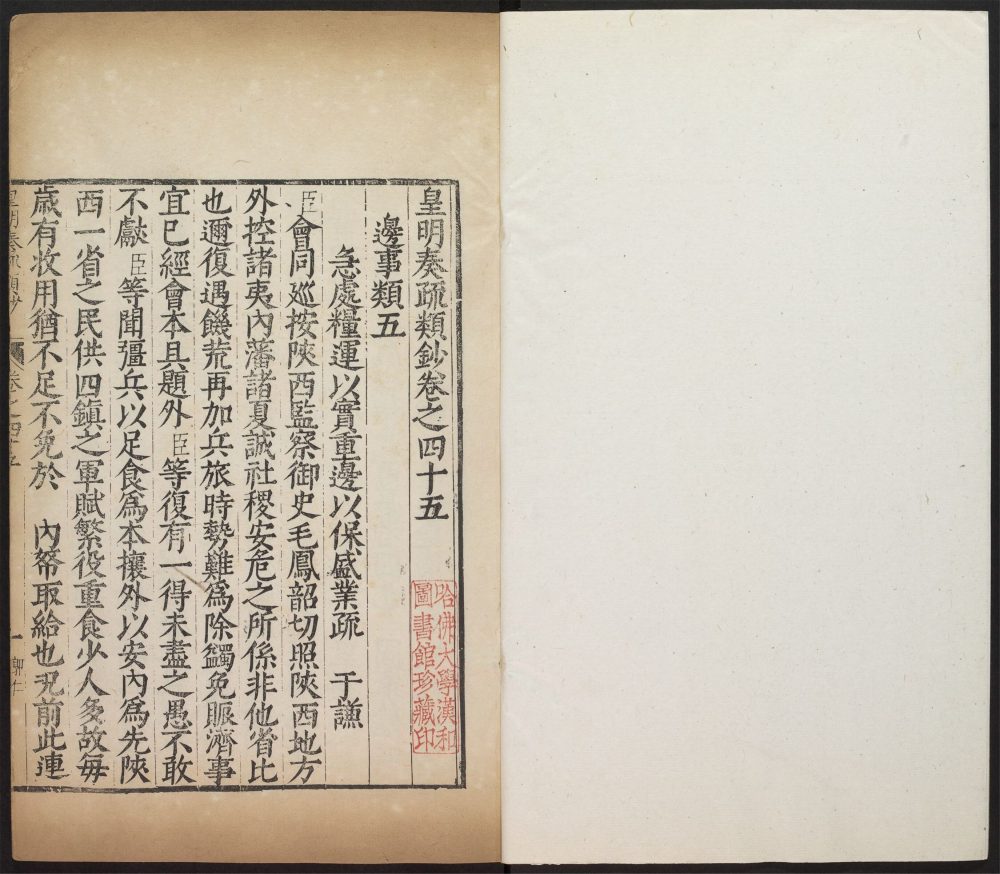 皇明奏疏類鈔卷之四十五
邊事類五
急處糧運以實重邊以保盛業疏 于謙
臣會同廵按陝西監察御史毛鳳韶切照陝西地方
外控諸夷內藩諸夏誠社稷安危之所係非他省比
也邇復遇饑荒再加兵旅時勢難為除蠲免賑濟事
宜已經會本具題外臣等復有一得未盡之愚不敢
不獻臣等聞彊兵以足食為本攘外以安內為先陝
西一省之民供四鎮之軍賦繁役重食少人多故每
歲有收用猶不足不免於 內帑取給也况前此連
哈佛大學漢和
圖書館珍藏印